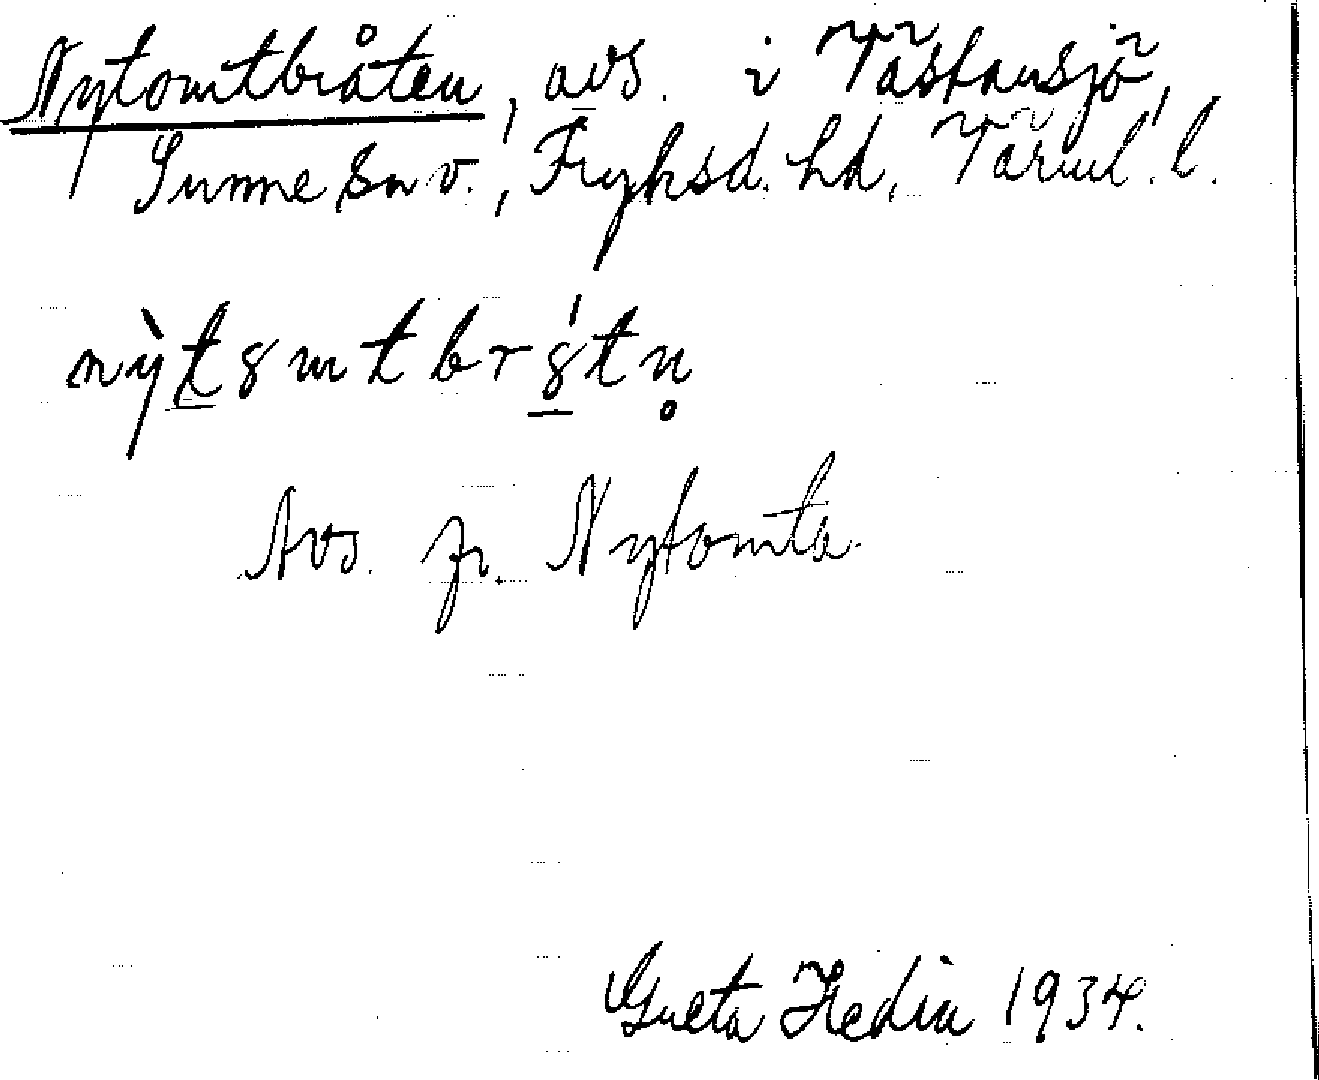 Nytomtbråten, avs. i Västansjö,
Sunne sn v., Fryksd. hd, Värml. l.
Avs. fr. Nytomta.
Greta Hedin 1934.